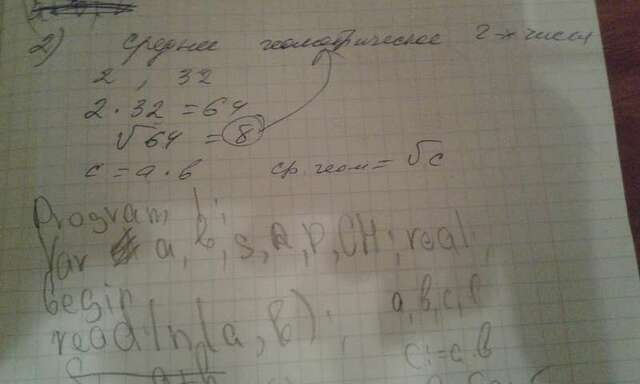 2) Среднее геометрическое 2-х чисел
2, 32
2·32=64
√64 = 8
c=a·b ср. геом = √c
Program b;
Var a, b, s, R, P, CH: real;
begin
readln(a, b);
a, b, c,
c:=a·b
a+b